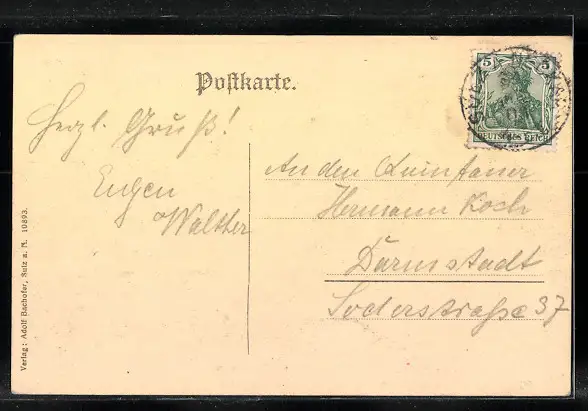 Postkarte.
5 5
DEUTSCHES REICH
Herzl. Gruß!
Eugen
Walther
An den Quintaner
Hermann Koch
Darmstadt
Soderstraße 37
Verlag: Adolf Bachofer, Sulz a. N. 10893.